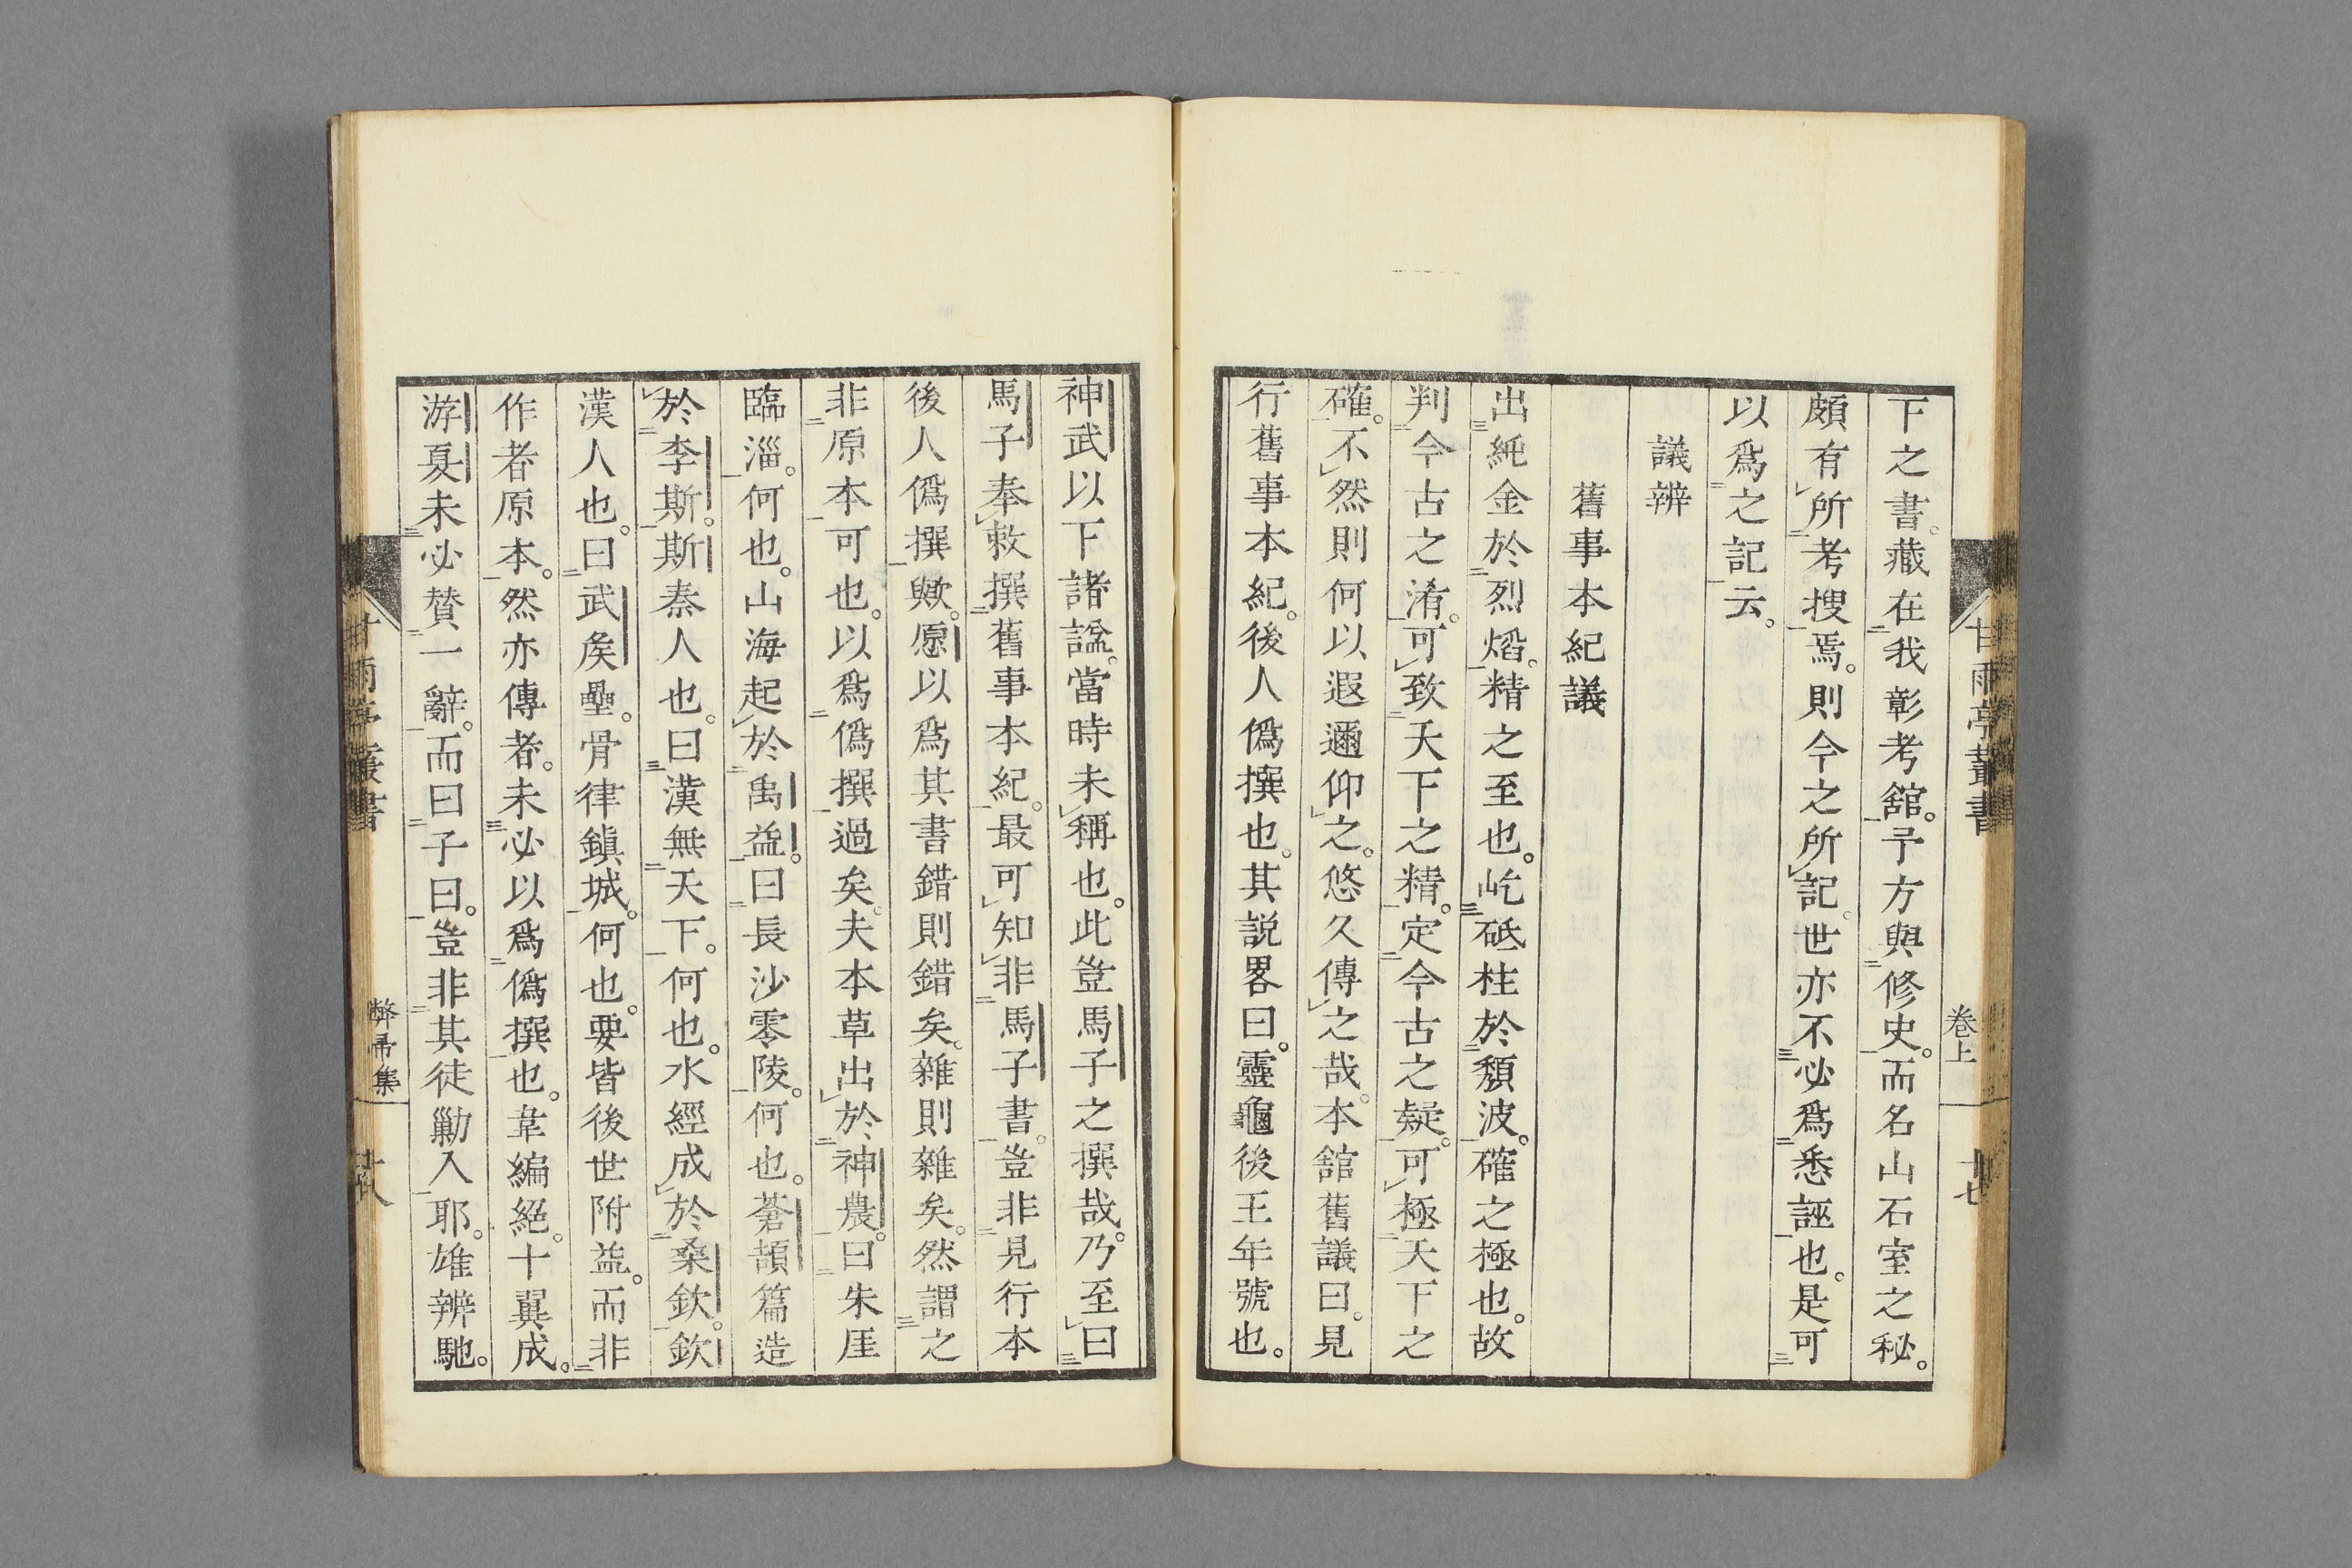 甘雨亭叢書
卷上
十七
下之書。藏在我彰考館。予方與修史。而名山石室之秘。
頗有所考搜焉。則今之所記。世亦不必爲悉誣也。是可
以爲之記云。
議辨
舊事本紀議
出純金於烈熖。精之至也。屹砥柱於頽波。確之極也。故
判今古之淆。可致天下之精。定今古之疑。可極天下之
確。不然則何以遐邇仰之。悠久傳之哉。本舘舊議曰。見
行舊事本紀。後人僞撰也。其説畧曰。靈龜後王年號也。
神武以下諸諡。當時未稱也。此豈馬子之撰哉。乃至曰
馬子奉敕撰舊事本紀。最可知非馬子書。豈非見行本
後人僞撰歟。愿以爲其書錯則錯矣。雜則雜矣。然謂之
非原本可也。以爲僞撰過矣。夫本草出於神農。曰朱厓
臨淄。何也。山海起於禹益。曰長沙零陵。何也。蒼頡篇造
於李斯。斯秦人也。曰漢無天下。何也。水經成於桑欽。欽
漢人也。曰武矦壘。骨律鎭城。何也。要皆後世附益。而非
作者原本。然亦傳者。未必以爲僞撰也。韋編絕。十翼成。
游夏未必賛一辭。而曰子曰。豈非其徒勦入耶。雄辨馳。
甘雨亭叢書
弊帚集
十八